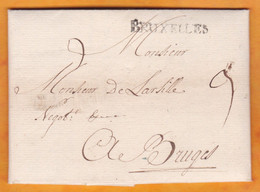 BRUXELLES
Monsieur
Monsieur De
Negoti
A Bruges